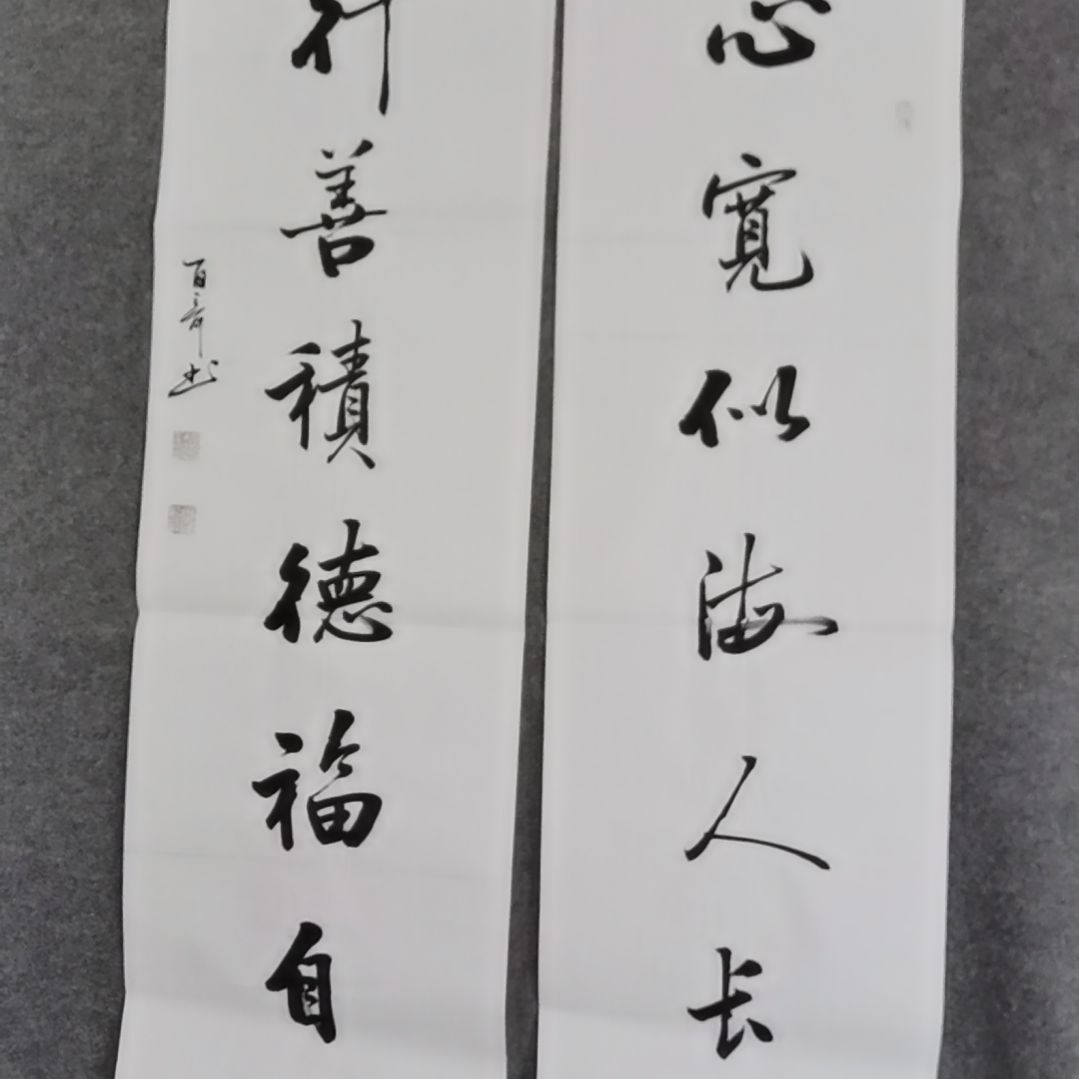 心寬似海人长
行善積德福自
百奇书